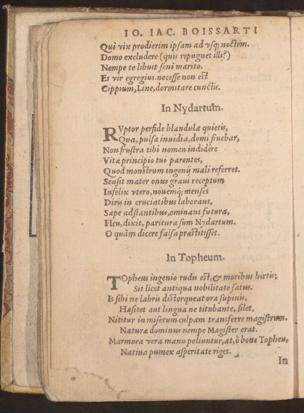 IO. IAC. BOISSARTI
Qui vix prodierim ipsam ad vsq; noctem.
Domo excludere (quis repugnet illi?)
Nempe te libuit seni marito.
Et vir egregius necesse non est
Cippium, Line, dormitare cunctis.
In Nydartum.
RVptor perfide blandulæ quietis,
Qua, pulsa inuidia, domi fruebar,
Non frustra tibi nomen indidere
Vitæ principio tui parentes,
Quod monstrum ingenij mali referret.
Sensit mater onus graui receptum
Infelix vtero, nouemq; menses
Diris in cruciatibus laborans,
Sæpe adstantibus, ominans futura,
Heu, dixit, paritura sum Nydartum.
O quàm dicere falsa præstitisset.
In Topheum.
TOpheus ingenio rudis est, & moribus hirtis;
Sit licet antiqua nobilitate satus.
Is sibi ne labris distorqueat ora supinis,
Hæsitet aut lingua ne titubante, silet.
Nititur in miserum culpam transferre magistrum.
Naturæ dominus nempe Magister erat.
Marmora vera manu poliuntur, at, ò bone Topheu,
Natiua pumex asperitate riget.
In